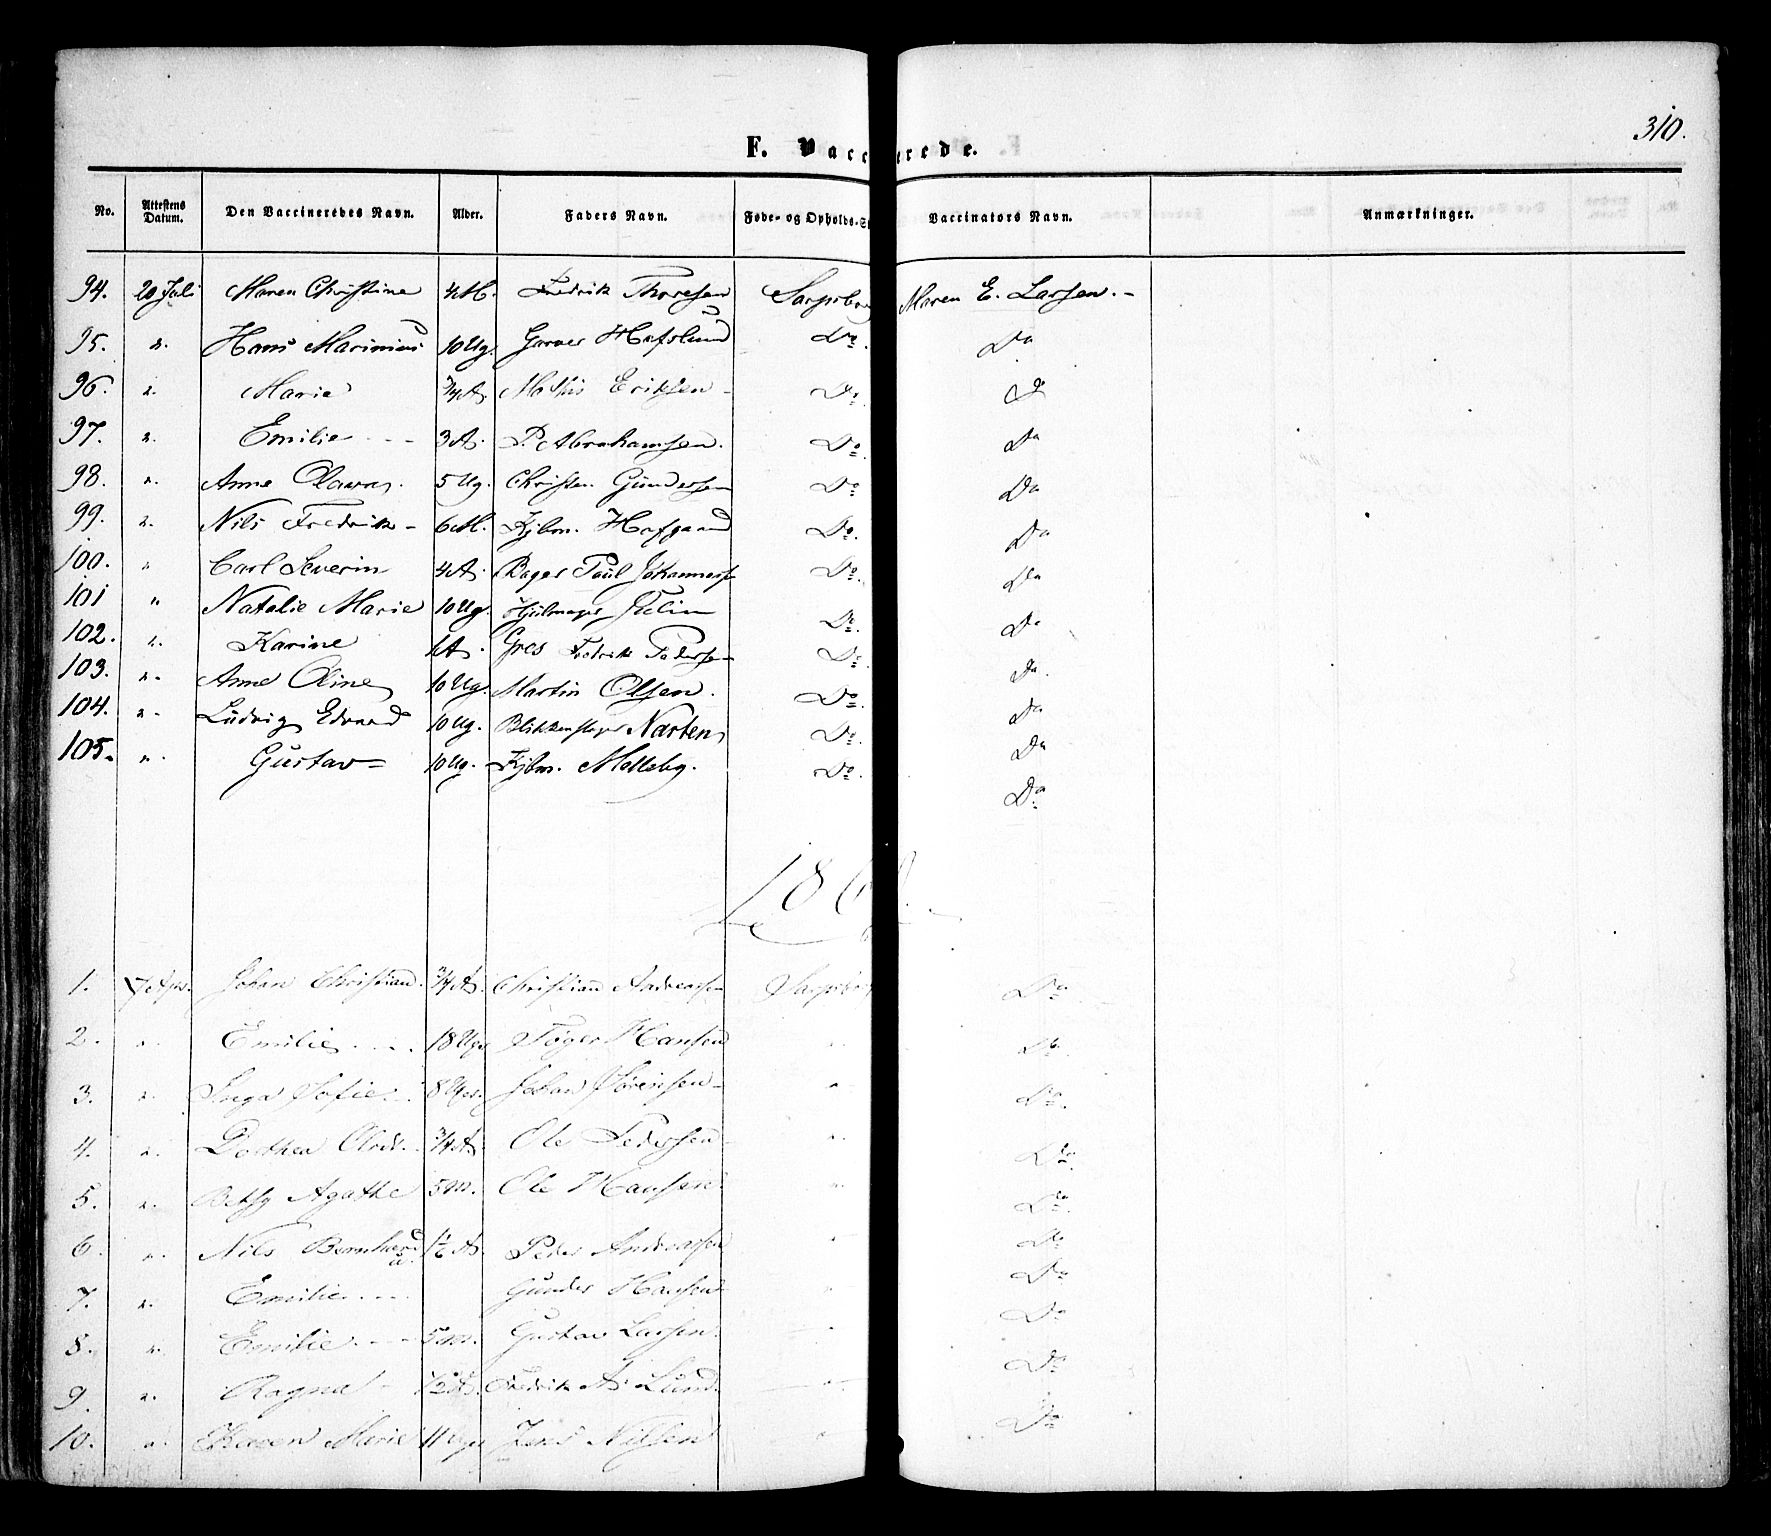 310.
F. Vaccinerede.
No. Attestens Datum. Den Vaccineredes Navn. Alder. Faders Navn. Føde- og Opholds-St Vaccinators Navn. Anmærkninger.
94. 20 Juli Maren Christine 4 M. Fredrik Thoresen Sarpsborg Maren E. Larsen.
95. " Hans Marinius 10 Ug. Garver Hafslund Do. Do
96. " Marie 3/4 A. Mathis Eriksen Do. Do
97. " Emilie 3 A. P. Abrahamsen. Do. Do
98. " Anne Olava. 5 Ug. Christen Gundersen Do Do
99. " Nils Fredrik 6 M. Kjbm. Hafgaard Do. Do
100. " Carl Severin 4 A. Bager Paul Johanness Do. Do
101 " Natalie Marie 10 Ug. Hjulmager Do. Do
102. " Karine A. Fredrik Pedersen Do. Do.
103. " Anne Oline 10 Ug. Martin Olsen. Do. Do
104. " Ludvig Edvard 10 Ug. Blikkenslager Narten Do. Do
105. " Gustav 10 Ug. Kjbm. Melleby. Do. Do
186
1. Johan Christian. 3/4 A. Christian Andreassen Sarpsborg Do
2. " Emilie 18 Ugr Hansen " Do.
3. " Inga Sofie 8 Ugr. Johan Sørensen " Do.
4. " Dorthea 3/4 A. Ole Pedersen " Do.
5. " Betsy Agathe 5 M. Ole Hansen " Do.
6. " Nils Bernhard A. Peder Andreassen " Do
7. " Emilie Gunder Hansen " Do
8. " Emilie 5 M. Gustav Larsen. " Do
9. " Ragna 1/2 A. Fredrik A. Lund. " Do
10. " Karen Marie 11 Ugr Jens Nilsen " Do